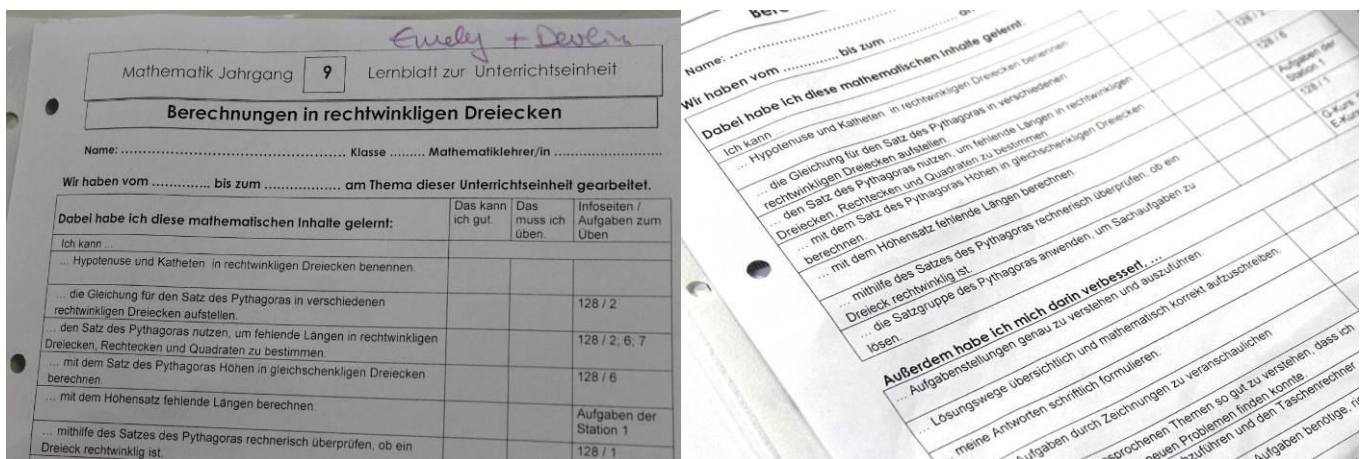 Emely + Devlin
Mathematik Jahrgang 9 Lernblatt zur Unterrichtseinheit
Berechnungen in rechtwinkligen Dreiecken
Name: ................................................ Klasse ......... Mathematiklehrer/in ..........................
Wir haben vom .............. bis zum .................. am Thema dieser Unterrichtseinheit gearbeitet.
Dabei habe ich diese mathematischen Inhalte gelernt:
Das kann ich gut.
Das muss ich üben.
Infoseiten / Aufgaben zum Üben
Ich kann ...
... Hypotenuse und Katheten in rechtwinkligen Dreiecken benennen.
... die Gleichung für den Satz des Pythagoras in verschiedenen
rechtwinkligen Dreiecken aufstellen.
128 / 2
... den Satz des Pythagoras nutzen, um fehlende Längen in rechtwinkligen
Dreiecken, Rechtecken und Quadraten zu bestimmen.
128 / 2; 6; 7
... mit dem Satz des Pythagoras Höhen in gleichschenkligen Dreiecken
berechnen.
128 / 6
... mit dem Höhensatz fehlende Längen berechnen.
Aufgaben der
Station 1
... mithilfe des Satzes des Pythagoras rechnerisch überprüfen, ob ein
Dreieck rechtwinklig ist.
128 / 1
Name: ................
Wir haben vom .............. bis zum
Dabei habe ich diese mathematischen Inhalte gelernt:
Ich kann ...
... Hypotenuse und Katheten in rechtwinkligen Dreiecken benennen
... die Gleichung für den Satz des Pythagoras in verschiedenen
rechtwinkligen Dreiecken aufstellen.
... den Satz des Pythagoras nutzen, um fehlende Längen in rechtwinkligen
Dreiecken, Rechtecken und Quadraten zu bestimmen.
... mit dem Satz des Pythagoras Höhen in gleichschenkligen Dreiecken
berechnen.
128 / 6
... mit dem Höhensatz fehlende Längen berechnen.
Aufgaben der
Station 1
... mithilfe des Satzes des Pythagoras rechnerisch überprüfen, ob ein
Dreieck rechtwinklig ist.
128 / 1
... die Satzgruppe des Pythagoras anwenden, um Sachaufgaben zu
lösen.
G-Kurs
E-Kurs
Außerdem habe ich mich darin verbessert, ...
... Aufgabenstellungen genau zu verstehen und auszuführen.
... Lösungswege übersichtlich und mathematisch korrekt aufzuschreiben.
... meine Antworten schriftlich formulieren.
Aufgaben durch Zeichnungen zu veranschaulichen
Themen so gut zu verstehen, dass ich
neuen Problemen finden konnte.
und den Taschenrechner
Aufgaben benötige,